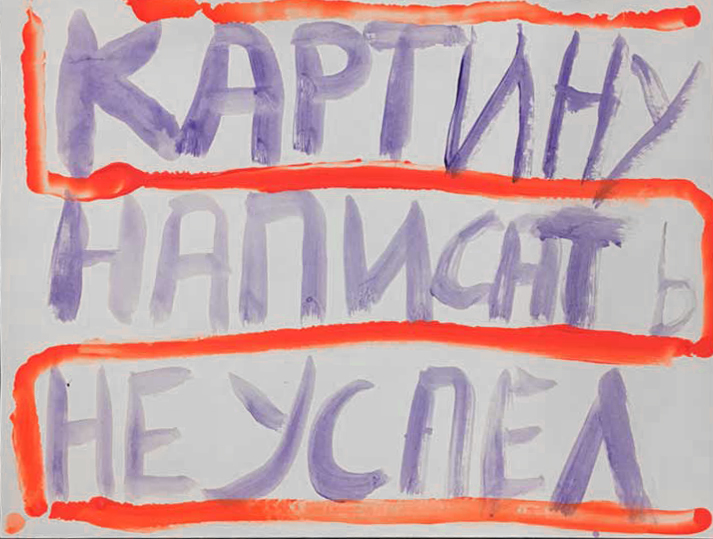 КАРТИНУ
НАПИСАТЬ
НЕ УСПЕЛ